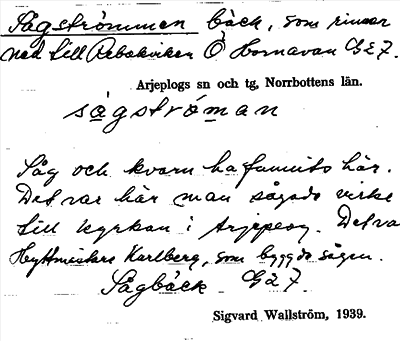 Sågströmmen bäck, som rinner
ned till Rebakviken Ö Hornavan Gä 7.
Arjeplogs sn och tg, Norrbottens län.
sågströman
Såg och kvarn ha funnits här.
Det var här man sågade virke
till kyrkan i Arjepeog. Det va
Hyttmästare Karlberg, som byggde sågen.
Sågbäck Gä 7.
Sigvard Wallström, 1939.